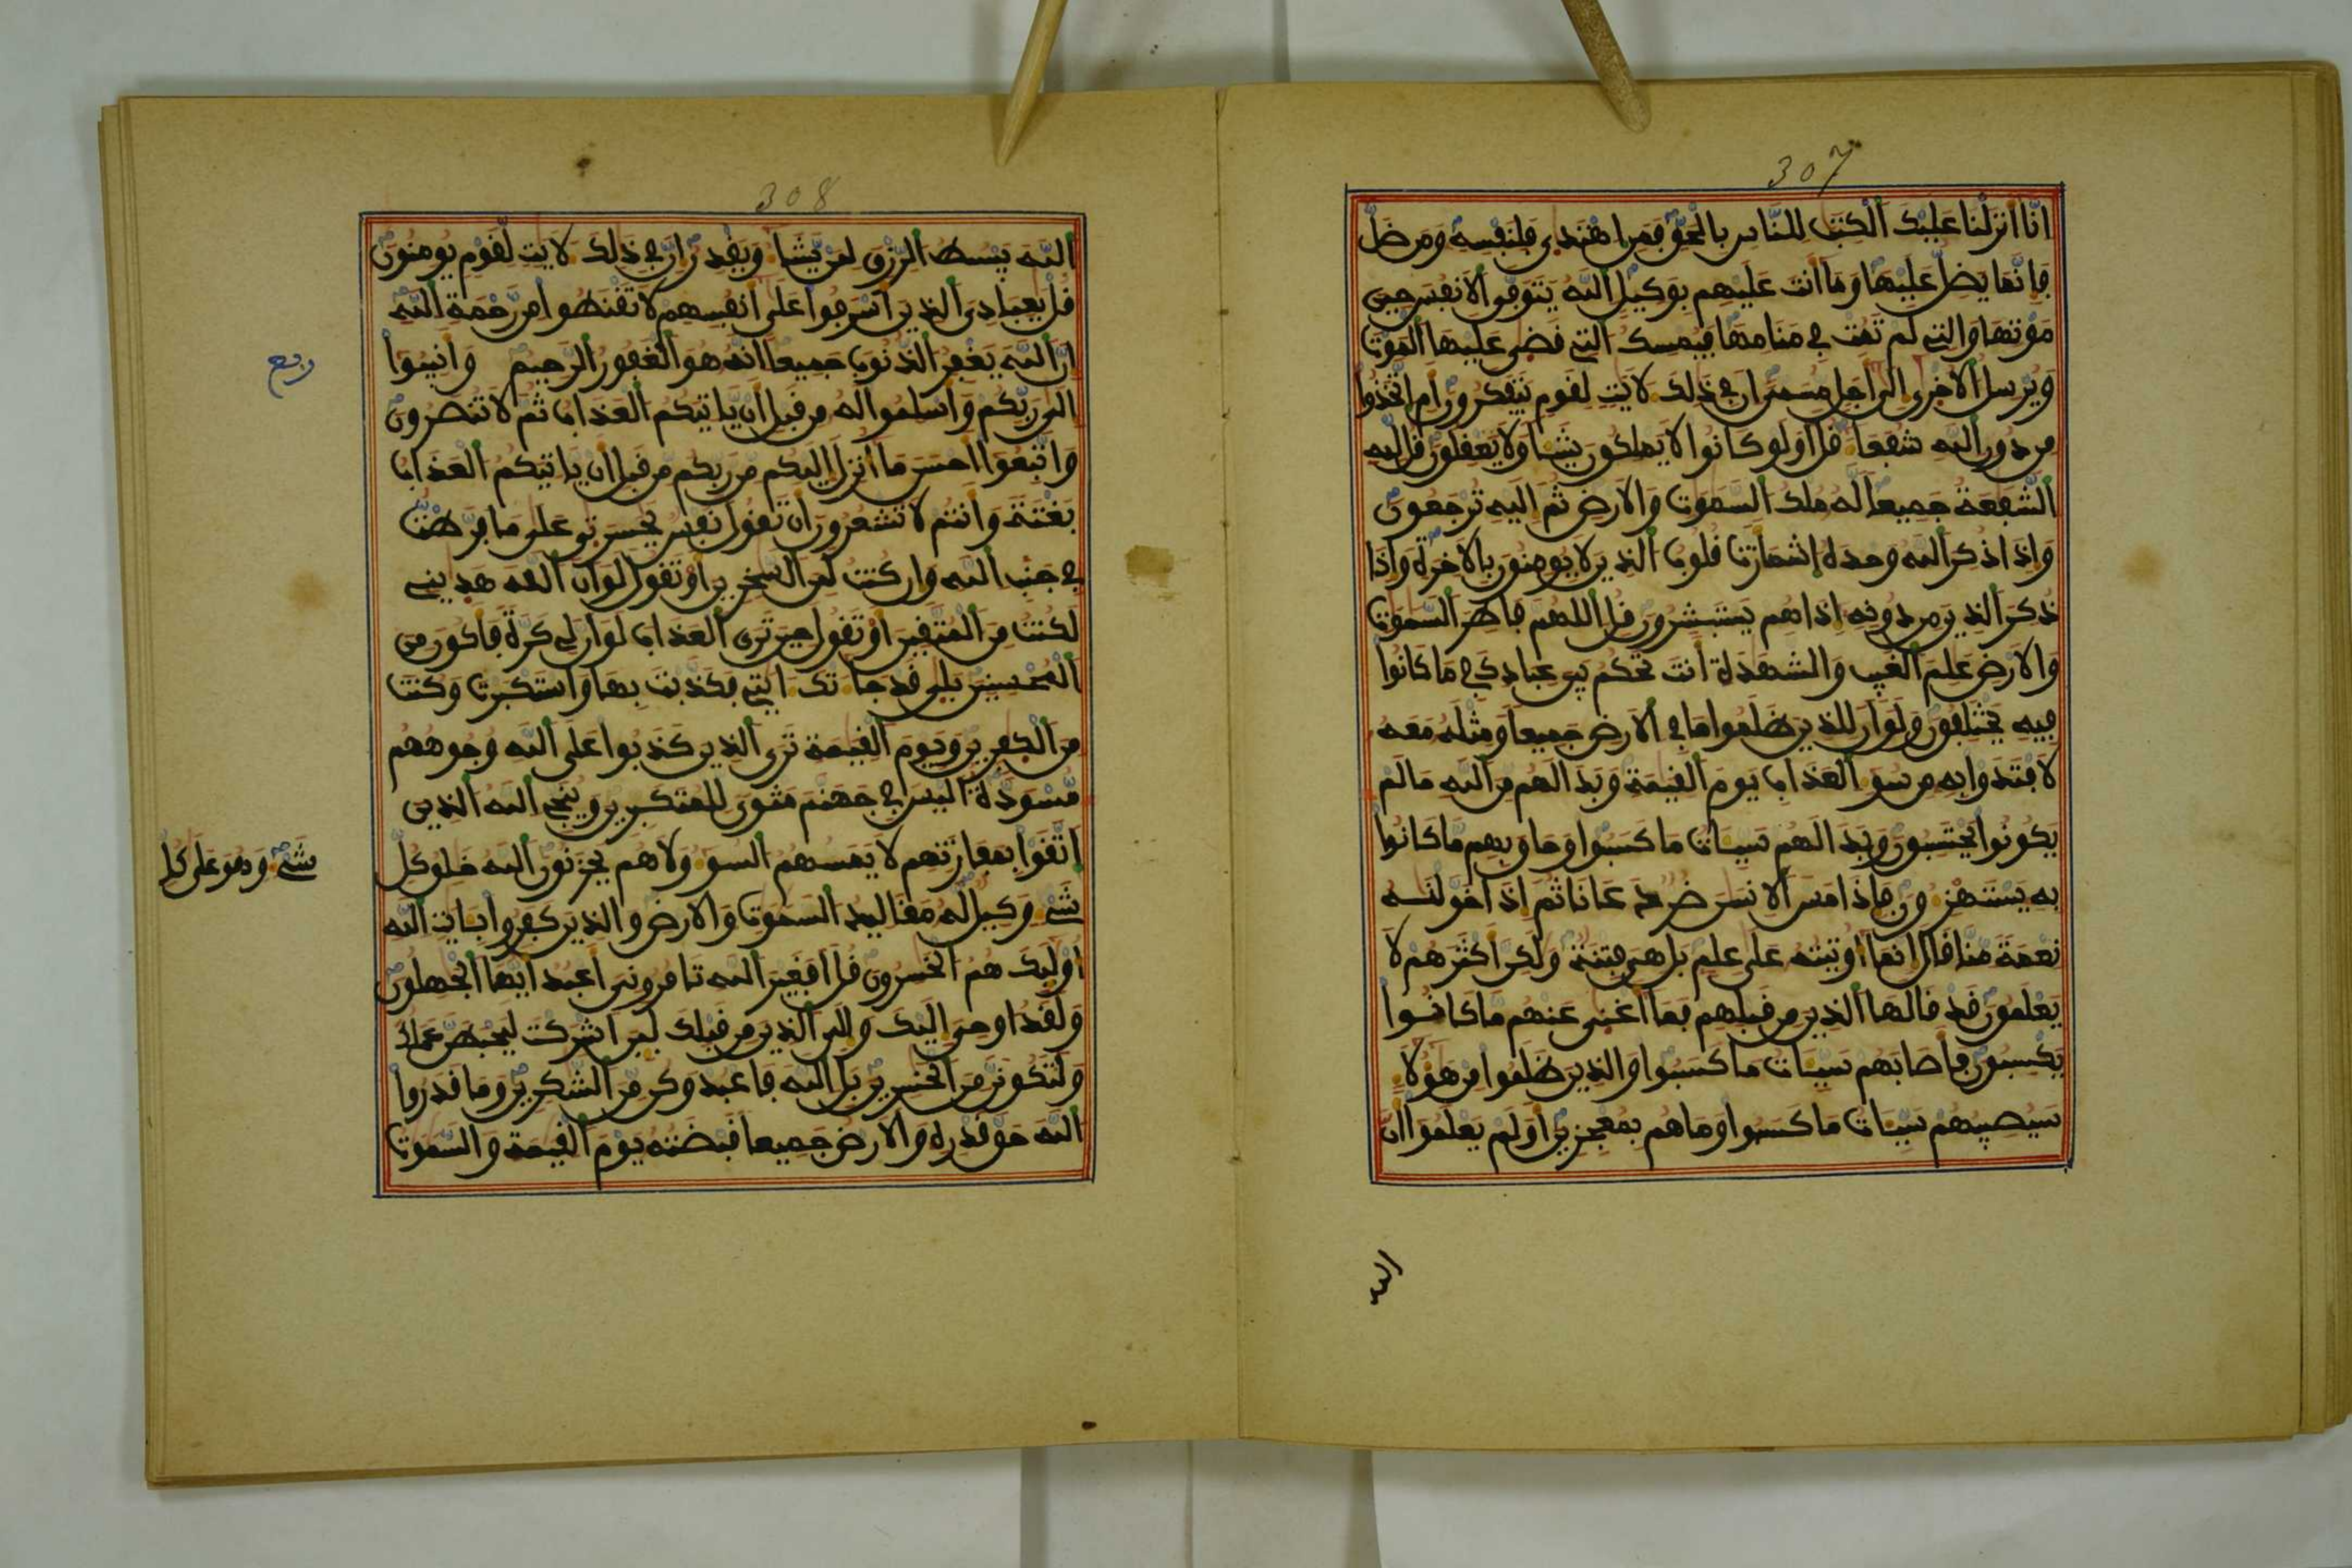 307
انا انزلنا عليك الكتب للناس بالحق فمن اهتدى فلنفسه ومن ضل
فانما يضل عليها وما انت عليهم بوكيل الله يتوفى الانفس حين
موتها والتى لم تمت في منامها فيمسك التى قضى عليها الموت
ويرسل الاخرى الى اجل مسمى ان في ذلك لايت لقوم يتفكرون ام اتخذوا
من دون الله شفعاء قل اولو كانوا لا يملكون شيئا ولا يعقلون قل لله
الشفعة جميعا له ملك السموت والارض ثم اليه ترجعون
واذا ذكر الله وحده اشمازت قلوب الذين لا يومنون بالاخرة واذا
ذكر الذين من دونه اذا هم يستبشرون قل اللهم فاطر السموت
والارض علم الغيب والشهدة انت تحكم بين عبادك في ما كانوا
فيه يختلفون ولو ان للذين ظلموا ما في الارض جميعا ومثله معه
لافتدوا به من سوء العذاب يوم القيمة وبدا لهم من الله ما لم
يكونوا يحتسبون وبدا لهم سيات ما كسبوا وحاق بهم ما كانوا
به يستهزءون فاذا مس الانسن ضر دعانا ثم اذا خولنه
نعمة منا قال انما اوتيته على علم بل هى فتنة ولكن اكثرهم لا
يعلمون قد قالها الذين من قبلهم فما اغنى عنهم ما كانوا
يكسبون فاصابهم سيات ما كسبوا والذين ظلموا من هؤلاء
سيصيبهم سيات ما كسبوا وما هم بمعجزين اولم يعلموا ان
308
الله يبسط الرزق لمن يشاء ويقدر ان في ذلك لايت لقوم يومنون
قل يعبادى الذين اسرفوا على انفسهم لا تقنطوا من رحمة الله
ان الله يغفر الذنوب جميعا انه هو الغفور الرحيم وانيبوا
ربع
الى ربكم واسلموا له من قبل ان ياتيكم العذاب ثم لا تنصرون
واتبعوا احسن ما انزل اليكم من ربكم من قبل ان ياتيكم العذاب
بغتة وانتم لا تشعرون ان تقول نفس يحسرتى على ما فرطت
في جنب الله وان كنت لمن السخرين او تقول لو ان الله هديني
لكنت من المتقين او تقول حين ترى العذاب لو ان لى كرة فاكون من
المحسنين بلى قد جاءتك ايتى فكذبت بها واستكبرت وكنت
من الكفرين ويوم القيمة ترى الذين كذبوا على الله وجوههم
مسودة اليس في جهنم مثوى للمتكبرين وينجي الله الذين
اتقوا بمفازتهم لا يمسهم السوء ولا هم يحزنون الله خلق كل
شىء وهو على كل
شىء وكيل له مقاليد السموت والارض والذين كفروا بايت الله
اوليك هم الخسرون قل افغير الله تامرونى اعبد ايها الجهلون
ولقد اوحى اليك والى الذين من قبلك لين اشركت ليحبطن عملك
ولتكونن من الخسرين بل الله فاعبد وكن من الشكرين وما قدروا
الله حق قدره والارض جميعا قبضته يوم القيمة والسموت